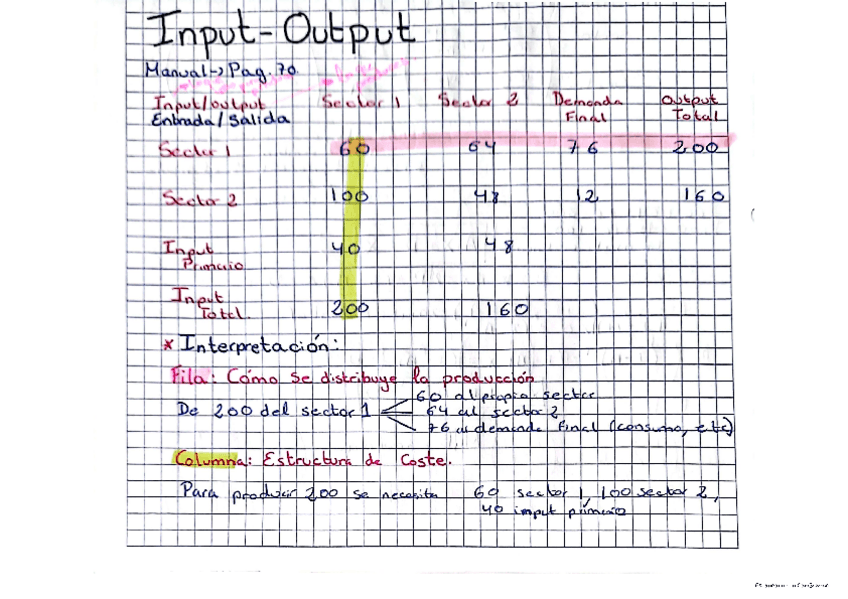 Input-Output
Manual→Pag. 70
Input/output Sector 1 Sector 2 Demanda Final Output Total
Entrada/Salida
Sector 1 60 64 76 200
Sector 2 100 48 12 160
Input Primario 40 48
Input Total 200 160
* Interpretación:
Fila: Cómo se distribuye la producción
60 al propio sector
De 200 del sector 1 64 al sector 2
76 a demanda final (consumo, etc)
Columna: Estructura de Coste.
Para producir 200 se necesita 60 sector 1, 100 sector 2,
40 input primario